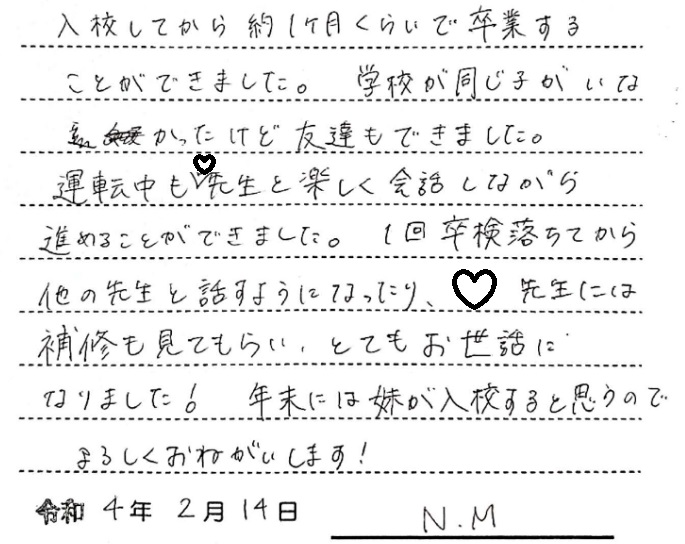 入校してから約1ヶ月くらいで卒業する
ことができました。 学校が同じ子がいな
かったけど友達もできました。
運転中も♡先生と楽しく会話しながら
進めることができました。 1回卒検落ちてから
他の先生と話すようになったり、♡先生には
補修も見てもらい、とてもお世話に
なりました! 年末には妹が入校すると思うので
よろしくおねがいします!
令和 4年 2月 14日
N.M